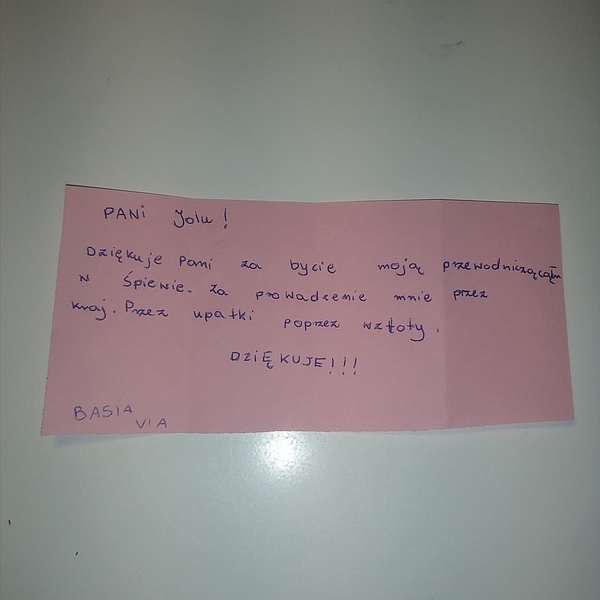 PANi Jolu!
Dziękuje Pani za bycie moją przewodniczącąm
w Śpiewie. Za prowadzenie mnie przez
kraj. Przez upatki poprzez wztoty.
DZiĘKUJE!!!
BASiA
VIA